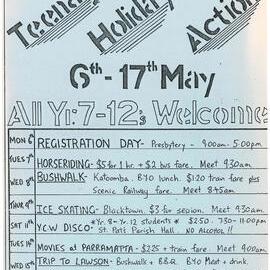 Teenage
Holiday
Action
6th - 17th May
All Yr: 7-12's Welcome
MON 6th REGISTRATION DAY - Presbytery - 9:00am - 5:00pm.
TUES 7th HORSERIDING - $5 for 1 hr. + $2 bus fare. Meet 9.30am
WED 8th BUSHWALK - Katoomba. BYO lunch. $1.20 train fare plus
Scenic Railway fare. Meet 8.45am
THUR 9th ICE SKATING - Blacktown. $3 for session. Meet 9.30am
SAT 11th YCW DISCO *Yr. 8 - Yr. 12 students* $2.50 7.30 - 11.00pm
St. Pats Parish Hall. NO ALCOHOL!!
TUES 14th MOVIES at PARRAMATTA - $2.25 + train fare. Meet 9.00am
WED 15th TRIP TO LAWSON - Bushwalk + B.B.Q. BYO Meat + drink.